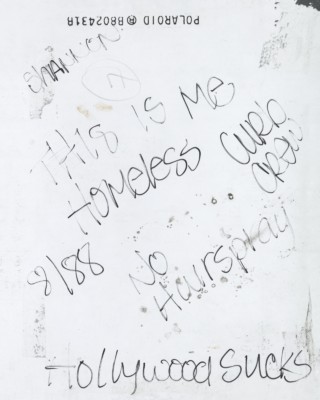 POLAROID ® B8024318
SHANNON
THIS IS ME
HOMELESS
CURB
CREW
8/88
NO
Hairspray
Hollywood Sucks